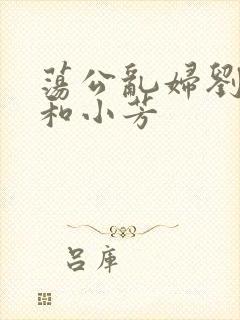 蕩公亂婦劉
和小芳
呂庫